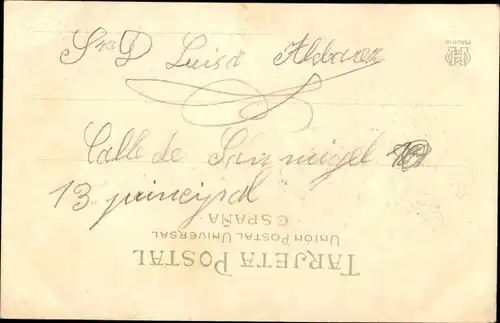 Sra D Luisa Aldavaez
Calle de San miguel
13 principal
TARJETA POSTAL
UNION POSTAL UNIVERSAL
· ESPAÑA ·
MADRID